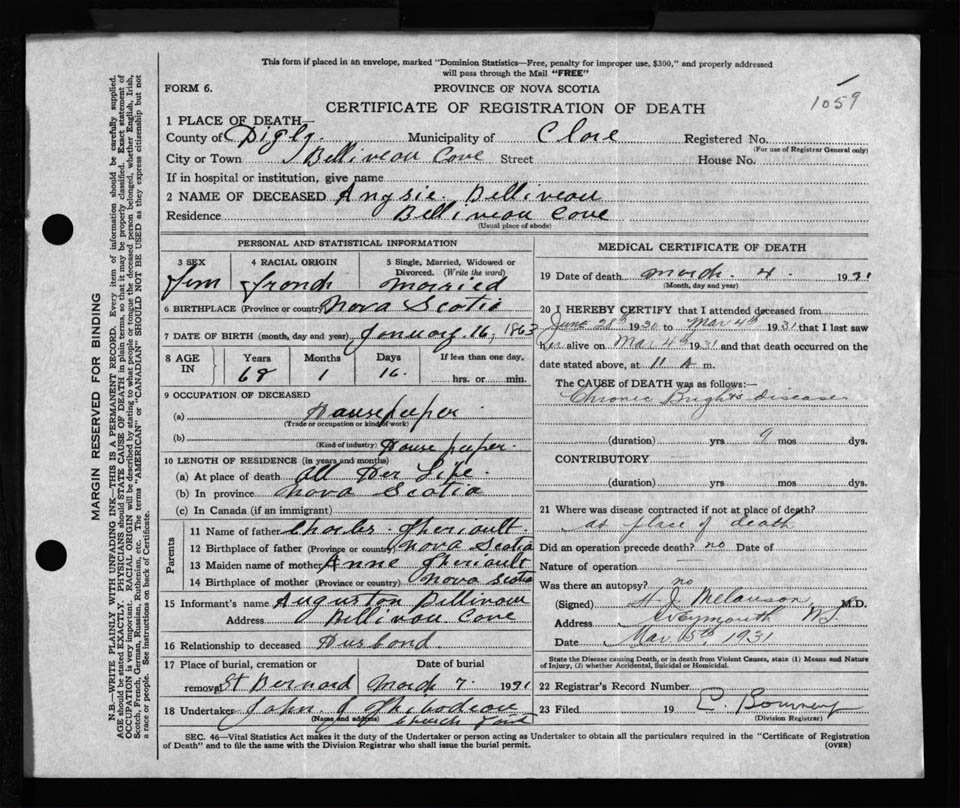 This form if placed in an envelope, marked "Dominion Statistics—Free, penalty for improper use, $300," and properly addressed
will pass through the Mail "FREE"
FORM 6.
PROVINCE OF NOVA SCOTIA
1059
CERTIFICATE OF REGISTRATION OF DEATH
1 PLACE OF DEATH—
County of Digby. Municipality of Clare Registered No.
(For use of Registrar General only)
City or Town Belliveau Cove Street House No.
If in hospital or institution, give name
2 NAME OF DECEASED Angsie Belliveau
Residence Belliveau Cove
(Usual place of abode)
PERSONAL AND STATISTICAL INFORMATION
3 SEX 4 RACIAL ORIGIN 5 Single, Married, Widowed or
Divorced. (Write the word)
Fem French Married
6 BIRTHPLACE (Province or country) Nova Scotia
7 DATE OF BIRTH (month, day and year) January 16, 1863
8 AGE IN Years Months Days If less than one day,
68 1 16. hrs. or min.
9 OCCUPATION OF DECEASED
(a) Housekeeper
(Trade or occupation or kind of work)
(b) Housekeeper.
(Kind of industry)
10 LENGTH OF RESIDENCE (in years and months)
(a) At place of death All Her Life.
(b) In province Nova Scotia
(c) In Canada (if an immigrant)
Parents
11 Name of father Charles Theriault
12 Birthplace of father (Province or country) Nova Scotia
13 Maiden name of mother Anne Theriault
14 Birthplace of mother (Province or country) Nova Scotia
15 Informant's name Auguston Billivau
Address Bellivau Cove
16 Relationship to deceased Husband.
17 Place of burial, cremation or Date of burial
removal St Bernard March 7. 1931
18 Undertaker John J Thibodeau
(Name and address) Church Point
MEDICAL CERTIFICATE OF DEATH
19 Date of death March. 4. 1931
(Month, day and year)
20 I HEREBY CERTIFY that I attended deceased from
June 28th 1930 to Mar 4th 1931 that I last saw
her alive on Mar 4th 1931 and that death occurred on the
date stated above, at 11 A m.
The CAUSE of DEATH was as follows:—
Chronic Brights disease
(duration) yrs 9 mos dys.
CONTRIBUTORY
(duration) yrs. mos. dys.
21 Where was disease contracted if not at place of death?
at place of death
Did an operation precede death? no Date of
Nature of operation —
Was there an autopsy? no
(Signed) H. J. Melanson, M.D.
Address Weymouth N.S.
Date Mar 5th, 1931
State the Disease causing Death, or in death from Violent Causes, state (1) Means and Nature
of Injury, (2) whether Accidental, Suicidal or Homicidal.
22 Registrar's Record Number
23 Filed 19
(Division Registrar)
SEC. 46—Vital Statistics Act makes it the duty of the Undertaker or person acting as Undertaker to obtain all the particulars required in the "Certificate of Registration
of Death" and to file the same with the Division Registrar who shall issue the burial permit.
(OVER)
MARGIN RESERVED FOR BINDING
N.B.—WRITE PLAINLY WITH UNFADING INK—THIS IS A PERMANENT RECORD. Every item of information should be carefully supplied.
AGE should be stated EXACTLY. PHYSICIANS should STATE CAUSE OF DEATH in plain terms, so that it may be properly classified. Exact statement of
OCCUPATION is very important. RACIAL ORIGIN will be described by stating to what people or tongue the deceased person belonged, whether English, Irish,
Scotch, French, German, Russian, Ruthenian, etc. The terms "AMERICAN" or "CANADIAN" SHOULD NOT BE USED as they express citizenship but not
a race or people. See instructions on back of Certificate.